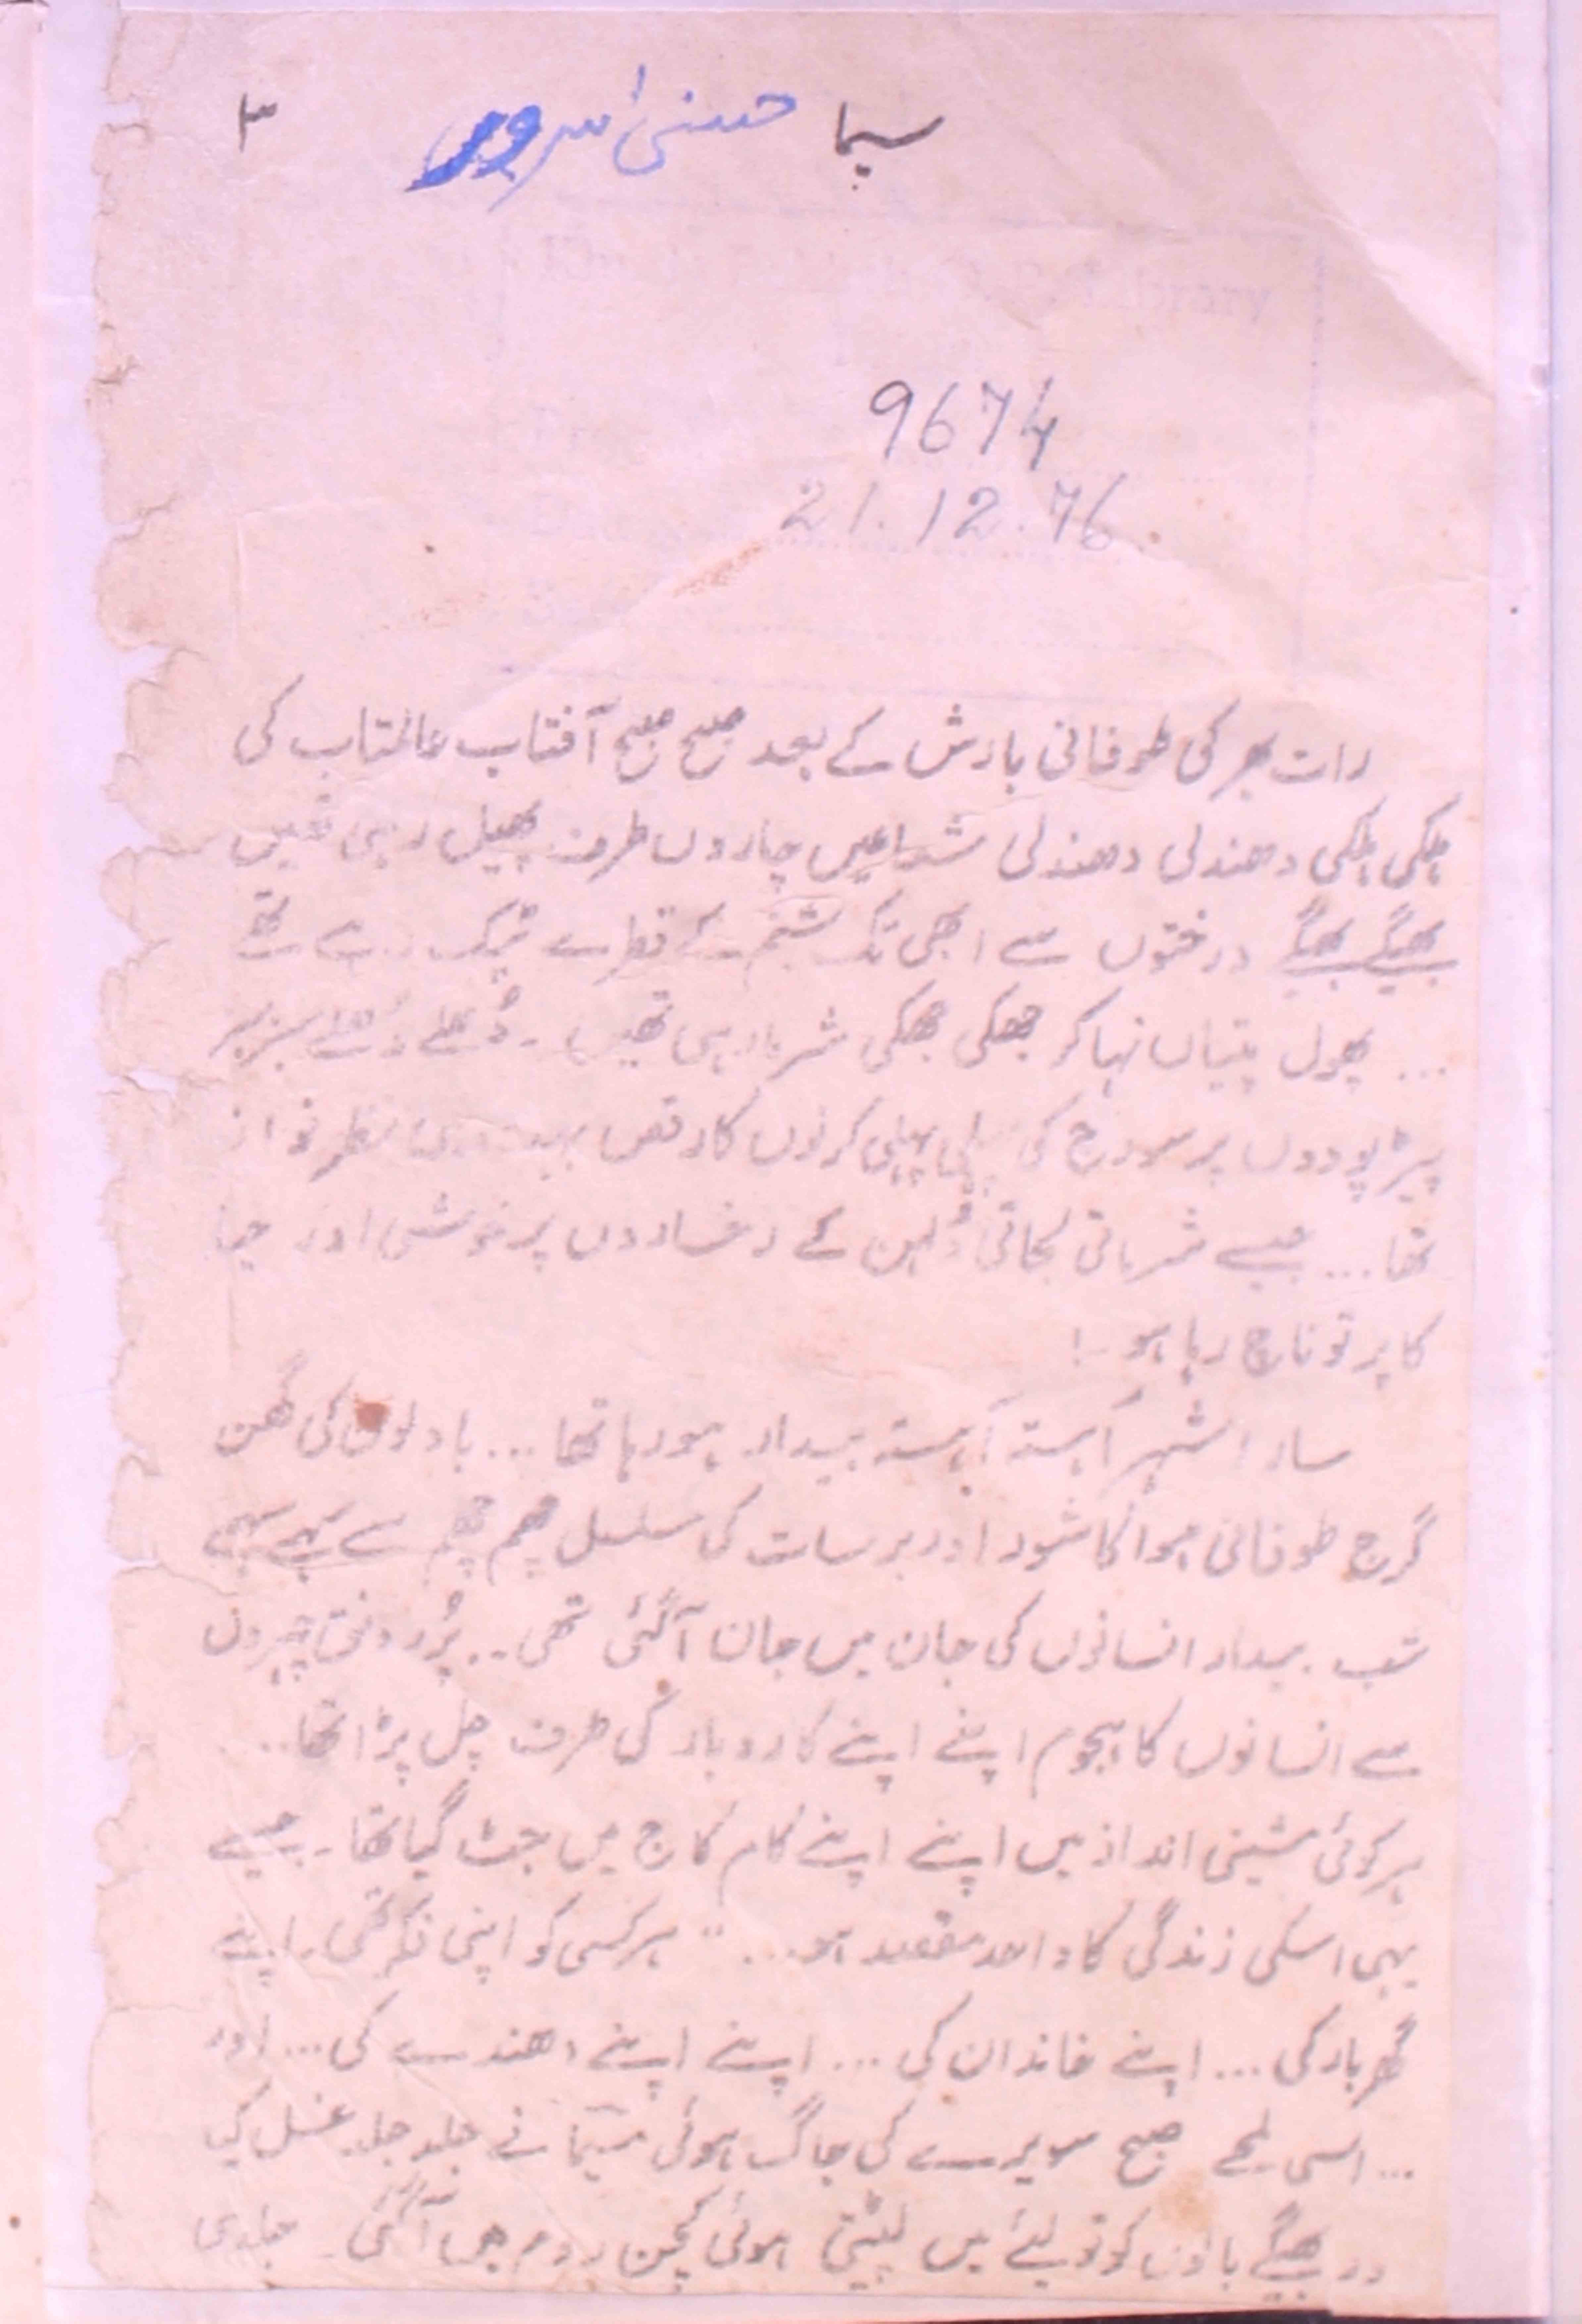 سیما حسنیٰ سرور ۳
Library
9674
21.12.76
رات بھر کی طوفانی بارش کے بعد صبح صبح آفتاب عالمتاب کی
ہلکی ہلکی دھندلی دھندلی شعاعیں چاروں طرف پھیل رہی تھیں
بھیگے بھیگے درختوں سے ابھی تک شبنم کے قطرے ٹپک رہے تھے
... پھول پتیاں نہا کر جھکی جھکی شرما رہی تھیں ۔ دُھلے دُھلے سرسبز
پیڑ پودوں پر سورج کی پہلی پہلی کرنوں کا رقص بہت ہی نظر نواز
تھا ... جیسے شرماتی لجاتی دُلہن کے رخساروں پر خوشی اور حیا
کا پرتو ناچ رہا ہو ۔!
سارا شہر آہستہ آہستہ بیدار ہو رہا تھا ... بادلوں کی گھن
گرج طوفانی ہوا کا شور اور برسات کی مسلسل چھم چھم سے سہمے سہمے
شب بیدار انسانوں کی جان میں جان آگئی تھی .. پُر رونق چہروں
سے انسانوں کا ہجوم اپنے اپنے کاروبار کی طرف چل پڑا تھا ....
ہر کوئی مشینی انداز میں اپنے اپنے کام کاج میں جٹ گیا تھا ۔ جیسے
یہی اسکی زندگی کا واحد مقصد ہو ... ہر کسی کو اپنی فکر تھی ۔ اپنے
گھر بار کی ... اپنے خاندان کی ... اپنے اپنے دھندے کی ... اور
... اسی لمحے صبح سویرے کی جاگی ہوئی سیما نے جلد جلد غسل کیا
اور بھیگے بالوں کو تولیئے میں لپیٹتی ہوئی کچن روم میں آگئی ۔ جلدی